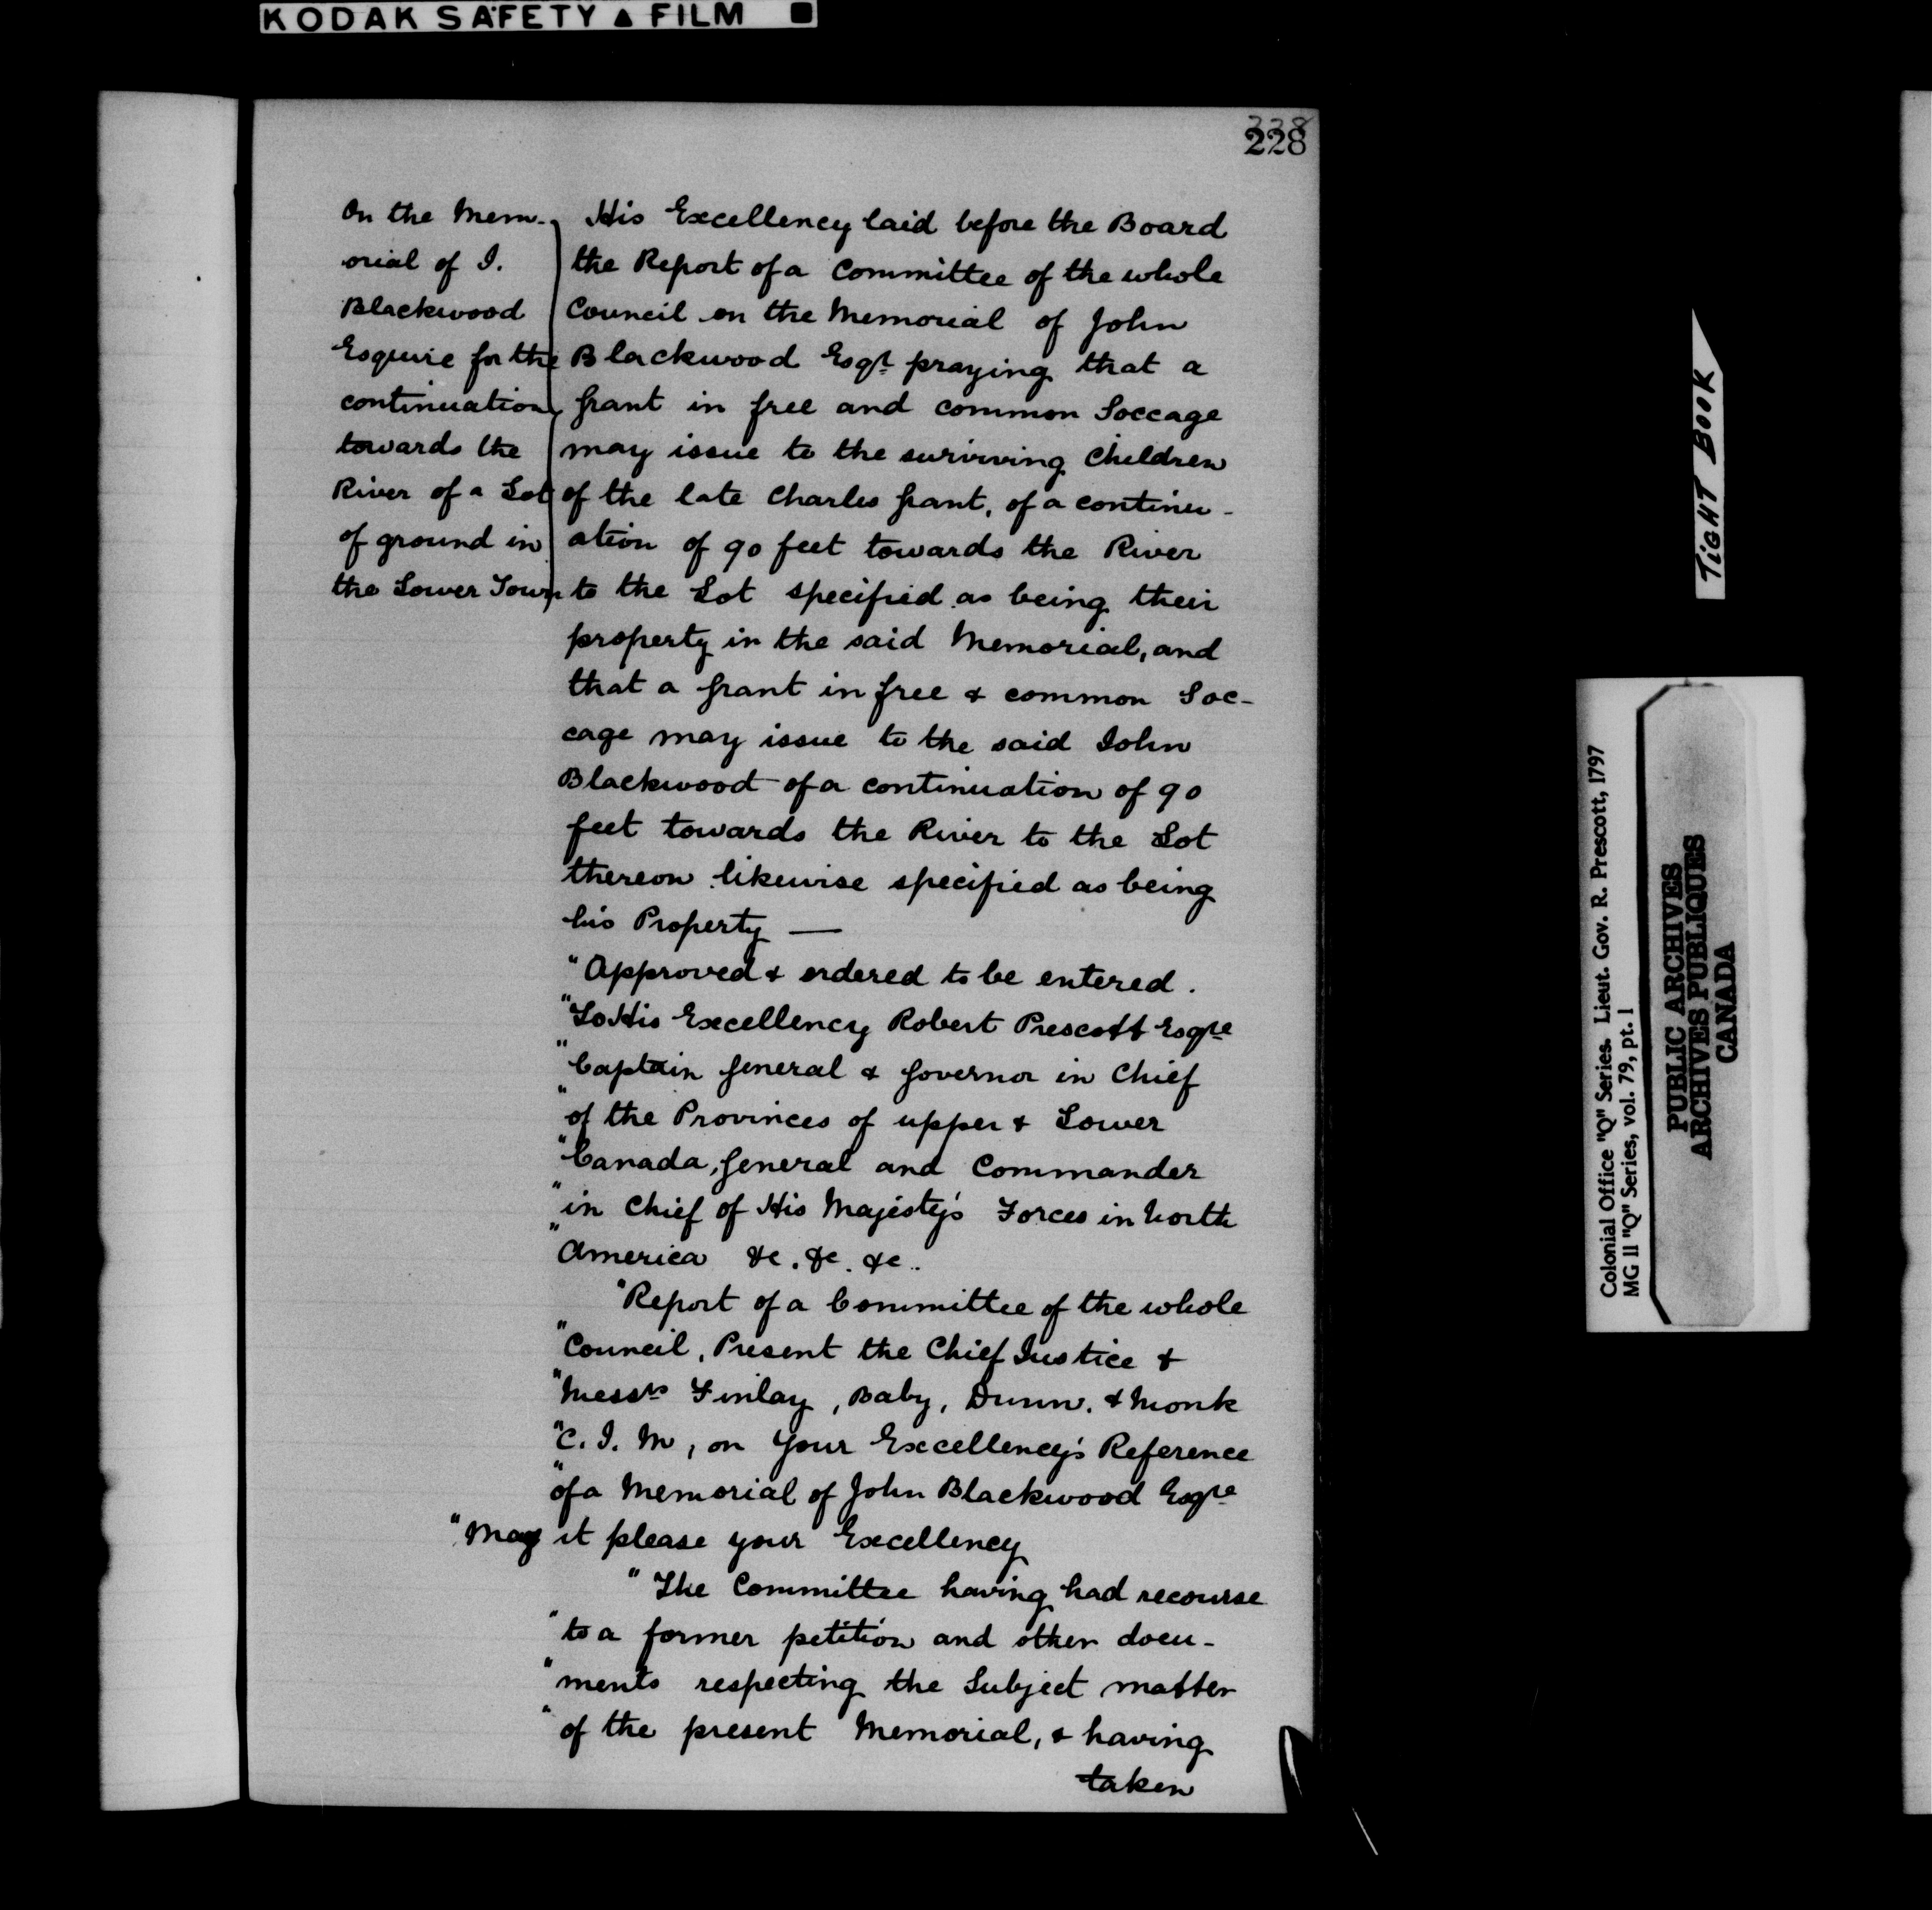 KODAK SAFETY ▲ FILM ■
338
228
On the Mem-
orial of I.
Blackwood
Esquire for the
continuation
towards the
River of a Lot
of ground in
the Lower Town
His Excellency laid before the Board
the Report of a Committee of the whole
Council on the Memorial of John
Blackwood Esqr. praying that a
Grant in free and common Soccage
may issue to the surviving Children
of the late Charles Grant, of a continu-
ation of 90 feet towards the River
to the Lot specified as being their
property in the said Memorial, and
that a Grant in free & common Soc-
cage may issue to the said John
Blackwood of a continuation of 90
feet towards the River to the Lot
thereon likewise specified as being
his Property —
"Approved & ordered to be entered.
"To His Excellency Robert Prescott Esqre
"Captain General & Governor in Chief
"of the Provinces of upper & Lower
"Canada, General and Commander
"in Chief of His Majesty's Forces in North
"America &c. &c. &c..
"Report of a Committee of the whole
"Council, Present the Chief Justice &
"Messrs Finlay, Baby, Dunn, & Monk
"C. I. M, on Your Excellency's Reference
"of a Memorial of John Blackwood Esqre
"May it please your Excellency
"The Committee having had recourse
"to a former petition and other docu-
"ments respecting the Subject matter
"of the present Memorial, & having
taken
TIGHT BOOK
Colonial Office "Q" Series. Lieut. Gov. R. Prescott, 1797
MG 11 "Q" Series, vol. 79, pt. 1
PUBLIC ARCHIVES
ARCHIVES PUBLIQUES
CANADA